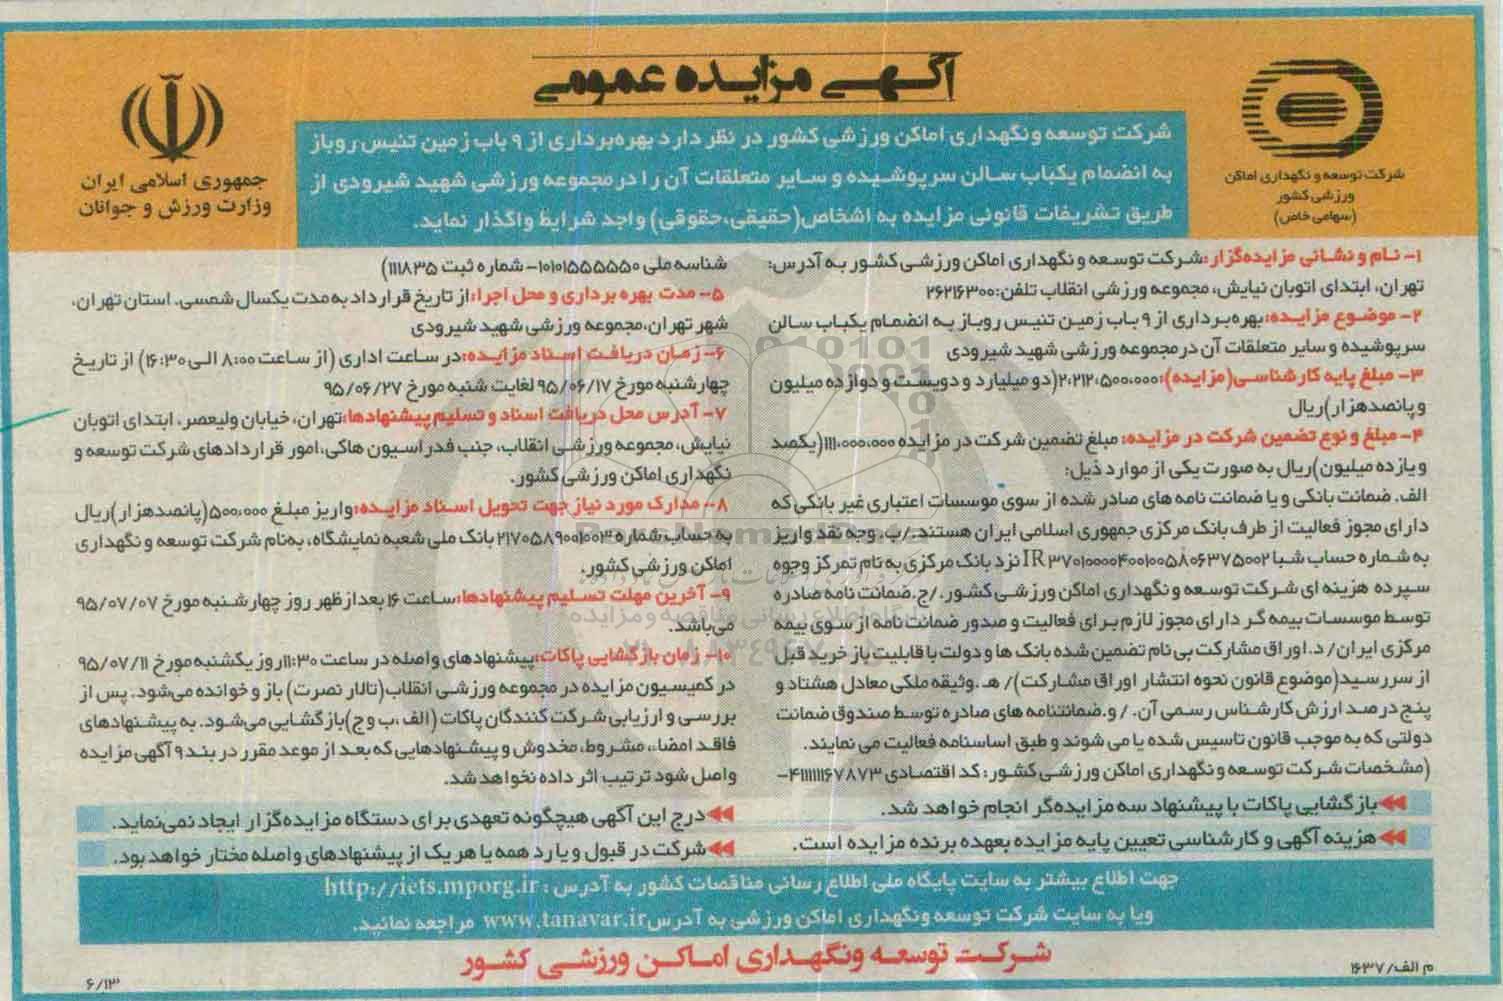 آگهی مزایده عمومی
جمهوری اسلامی ایران
وزارت ورزش و جوانان
شرکت توسعه و نگهداری اماکن
ورزشی کشور
(سهامی خاص)
شرکت توسعه و نگهداری اماکن ورزشی کشور در نظر دارد بهره‌برداری از ۹ باب زمین تنیس روباز
به انضمام یکباب سالن سرپوشیده و سایر متعلقات آن را در مجموعه ورزشی شهید شیرودی از
طریق تشریفات قانونی مزایده به اشخاص(حقیقی،حقوقی) واجد شرایط واگذار نماید.
۱- نام و نشانی مزایده‌گزار:شرکت توسعه و نگهداری اماکن ورزشی کشور به آدرس:
تهران، ابتدای اتوبان نیایش، مجموعه ورزشی انقلاب تلفن:۲۶۲۱۶۳۰۰
۲- موضوع مزایده:بهره‌برداری از ۹ باب زمین تنیس روباز به انضمام یکباب سالن
سرپوشیده و سایر متعلقات آن در مجموعه ورزشی شهید شیرودی
۳- مبلغ پایه کارشناسی(مزایده):۲،۲۱۲،۵۰۰،۰۰۰(دو میلیارد و دویست و دوازده میلیون
و پانصدهزار)ریال
۴- مبلغ و نوع تضمین شرکت در مزایده: مبلغ تضمین شرکت در مزایده ۱۱۱،۰۰۰،۰۰۰(یکصد
و یازده میلیون)ریال به صورت یکی از موارد ذیل:
الف. ضمانت بانکی و یا ضمانت نامه های صادر شده از سوی موسسات اعتباری غیر بانکی که
دارای مجوز فعالیت از طرف بانک مرکزی جمهوری اسلامی ایران هستند./ب. وجه نقد واریز
به شماره حساب شبا IR۳۷۰۱۰۰۰۰۴۰۰۱۰۰۵۸۰۶۳۷۵۰۰۲ نزد بانک مرکزی به نام تمرکز وجوه
سپرده هزینه ای شرکت توسعه و نگهداری اماکن ورزشی کشور./ج.ضمانت نامه صادره
توسط موسسات بیمه گر دارای مجوز لازم برای فعالیت و صدور ضمانت نامه از سوی بیمه
مرکزی ایران/ د.اوراق مشارکت بی نام تضمین شده بانک ها و دولت با قابلیت باز خرید قبل
از سررسید(موضوع قانون نحوه انتشار اوراق مشارکت)/ هـ.وثیقه ملکی معادل هشتاد و
پنج درصد ارزش کارشناس رسمی آن. / و.ضمانتنامه های صادره توسط صندوق ضمانت
دولتی که به موجب قانون تاسیس شده یا می شوند و طبق اساسنامه فعالیت می نمایند.
(مشخصات شرکت توسعه و نگهداری اماکن ورزشی کشور: کد اقتصادی ۴۱۱۱۱۱۱۶۷۸۷۳-
شناسه ملی ۱۰۱۰۱۵۵۵۵۵۰- شماره ثبت ۱۱۱۸۳۵)
۵- مدت بهره برداری و محل اجرا:از تاریخ قرارداد به مدت یکسال شمسی. استان تهران،
شهر تهران،مجموعه ورزشی شهید شیرودی
۶- زمان دریافت اسناد مزایده:در ساعت اداری (از ساعت ۸:۰۰ الی ۱۶:۳۰) از تاریخ
چهارشنبه مورخ ۹۵/۰۶/۱۷ لغایت شنبه مورخ ۹۵/۰۶/۲۷
۷- آدرس محل دریافت اسناد و تسلیم پیشنهادها:تهران، خیابان ولیعصر، ابتدای اتوبان
نیایش، مجموعه ورزشی انقلاب، جنب فدراسیون هاکی،امور قراردادهای شرکت توسعه و
نگهداری اماکن ورزشی کشور.
۸- مدارک مورد نیاز جهت تحویل اسناد مزایده:واریز مبلغ ۵۰۰،۰۰۰(پانصدهزار)ریال
به حساب شماره ۲۱۷۰۵۸۹۰۰۱۰۰۳ بانک ملی شعبه نمایشگاه، به‌نام شرکت توسعه و نگهداری
اماکن ورزشی کشور.
۹- آخرین مهلت تسلیم پیشنهادها:ساعت ۱۶ بعدازظهر روز چهارشنبه مورخ ۹۵/۰۷/۰۷
می‌باشد.
۱۰- زمان بازگشایی پاکات:پیشنهادهای واصله در ساعت ۱۱:۳۰روز یکشنبه مورخ ۹۵/۰۷/۱۱
در کمیسیون مزایده در مجموعه ورزشی انقلاب(تالار نصرت) باز و خوانده می‌شود. پس از
بررسی و ارزیابی شرکت کنندگان پاکات (الف ،ب و ج)بازگشایی می‌شود. به پیشنهادهای
فاقد امضاء، مشروط، مخدوش و پیشنهادهایی که بعد از موعد مقرر در بند ۹ آگهی مزایده
واصل شود ترتیب اثر داده نخواهد شد.
بازگشایی پاکات با پیشنهاد سه مزایده‌گر انجام خواهد شد.
هزینه آگهی و کارشناسی تعیین پایه مزایده بعهده برنده مزایده است.
درج این آگهی هیچگونه تعهدی برای دستگاه مزایده‌گزار ایجاد نمی‌نماید.
شرکت در قبول و یا رد همه یا هر یک از پیشنهادهای واصله مختار خواهد بود.
جهت اطلاع بیشتر به سایت پایگاه ملی اطلاع رسانی مناقصات کشور به آدرس : http://iets.mporg.ir
ویا به سایت شرکت توسعه ونگهداری اماکن ورزشی به آدرس www.tanavar.ir مراجعه نمائید.
شرکت توسعه ونگهداری اماکن ورزشی کشور
م الف/ ۱۶۳۷
۶/۱۳